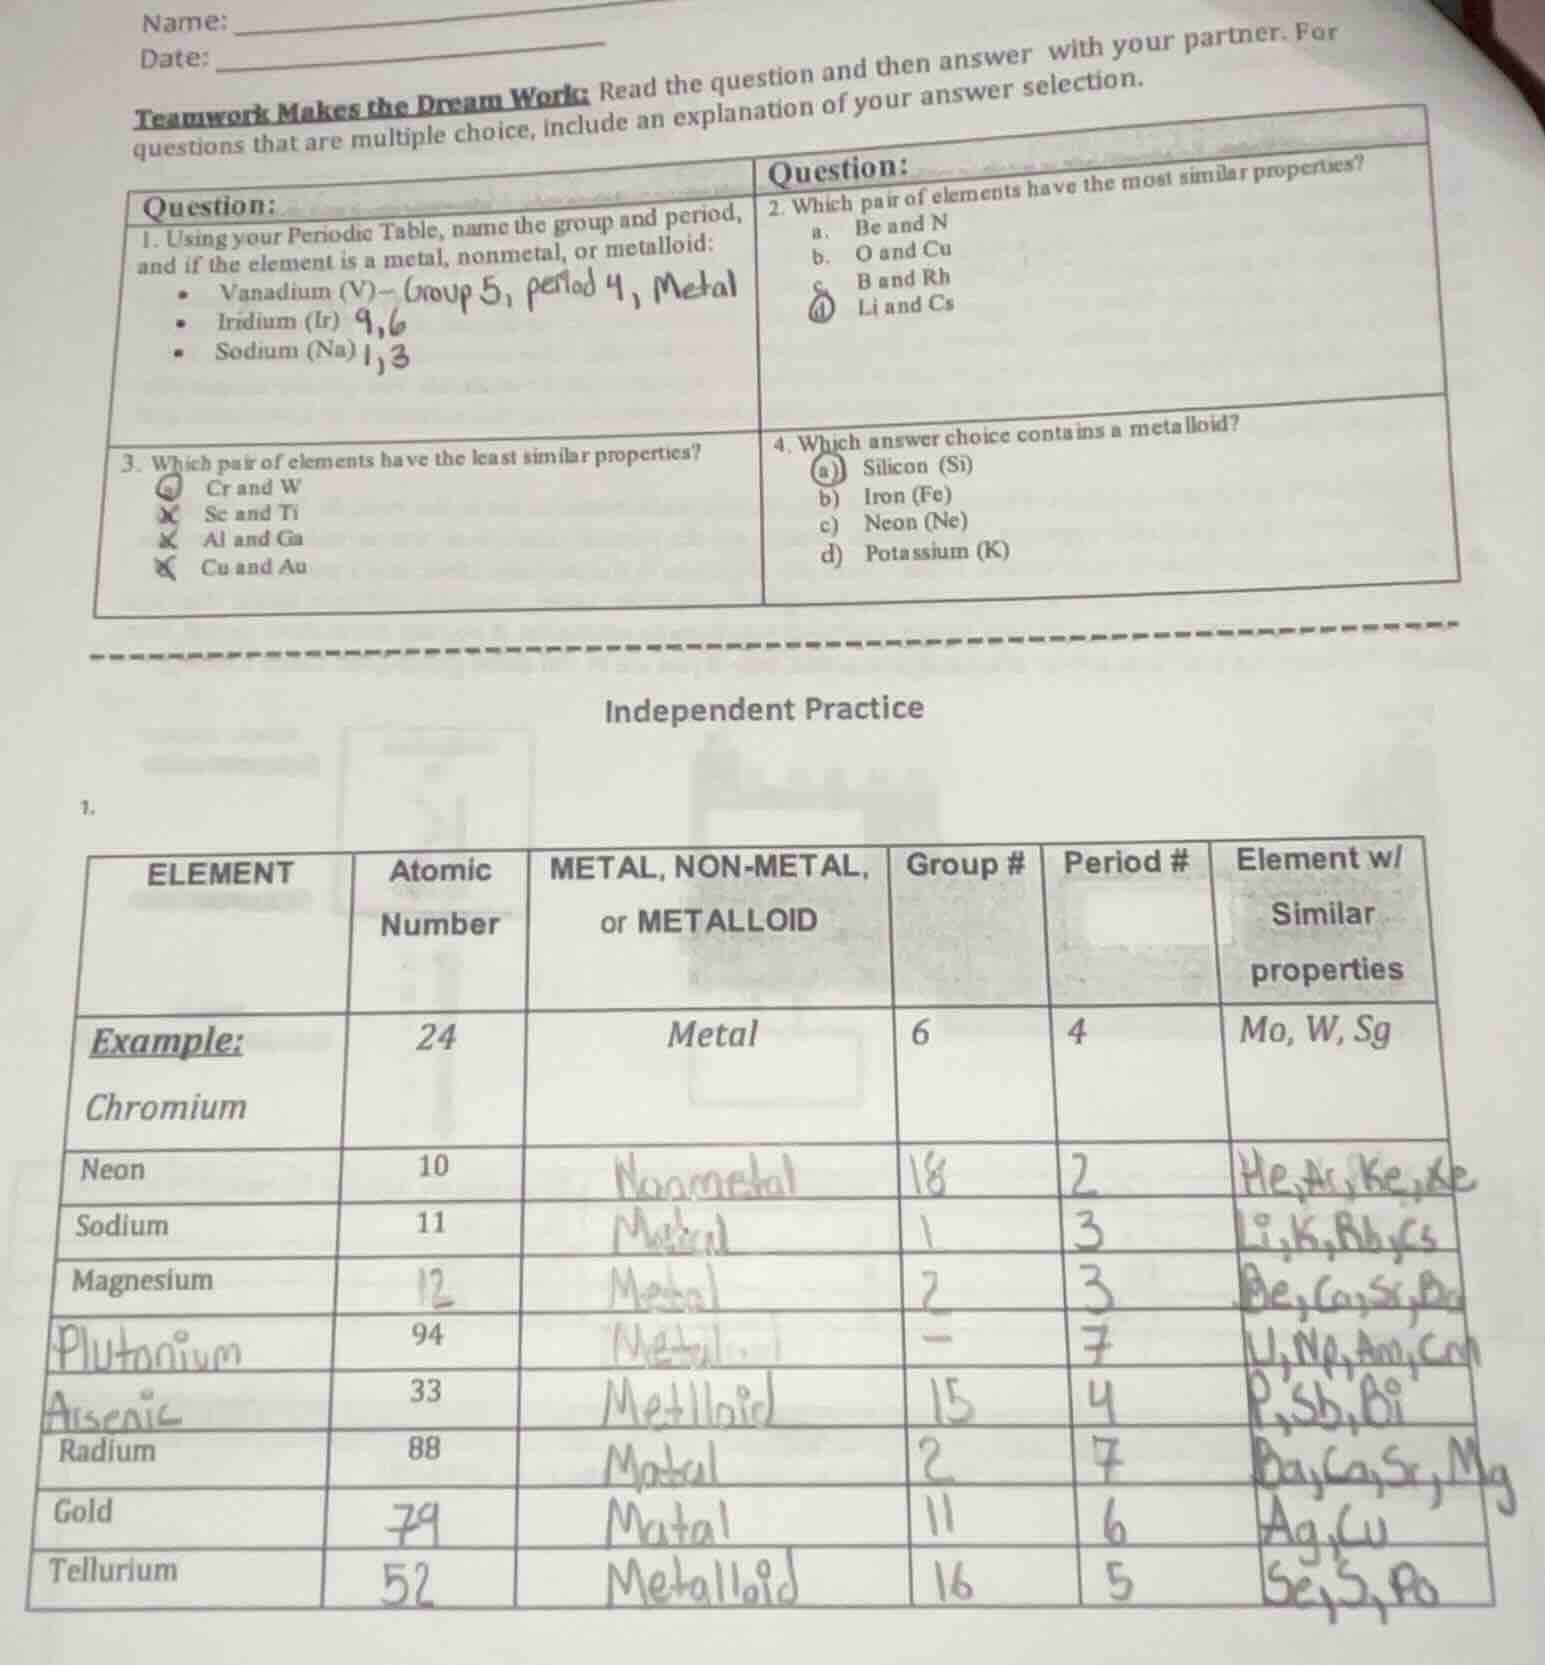 Name:
Date:
Teamwork Makes the Dream Work: Read the question and then answer with your partner. For
questions that are multiple choice, include an explanation of your answer selection.
Question:
1. Using your Periodic Table, name the group and period,
and if the element is a metal, nonmetal, or metalloid:
• Vanadium (V)– Group 5, period 4, Metal
• Iridium (Ir) 9,6
• Sodium (Na) 1,3
Question:
2. Which pair of elements have the most similar properties?
a. Be and N
b. O and Cu
c. B and Rh
d Li and Cs
3. Which pair of elements have the least similar properties?
Cr and W
Sc and Ti
Al and Ga
Cu and Au
4. Which answer choice contains a metalloid?
a) Silicon (Si)
b) Iron (Fe)
c) Neon (Ne)
d) Potassium (K)
Independent Practice
1.
ELEMENT Atomic Number METAL, NON-METAL, or METALLOID Group # Period # Element w/ Similar properties
Example: Chromium 24 Metal 6 4 Mo, W, Sg
Neon 10 Nonmetal 18 2 He, Ar, Ke, Xe
Sodium 11 Matal 1 3 Li, K, Rb, Cs
Magnesium 12 Metal 2 3 Be, Ca, Sr, Ba
Plutonium 94 Metal 7 U, Np, Am, Cm
Arsenic 33 Metlloid 15 4 P, Sb, Bi
Radium 88 Matal 2 7 Ba, Ca, Sr, Mg
Gold 79 Matal 11 6 Ag, Cu
Tellurium 52 Metalloid 16 5 Se, S, Po